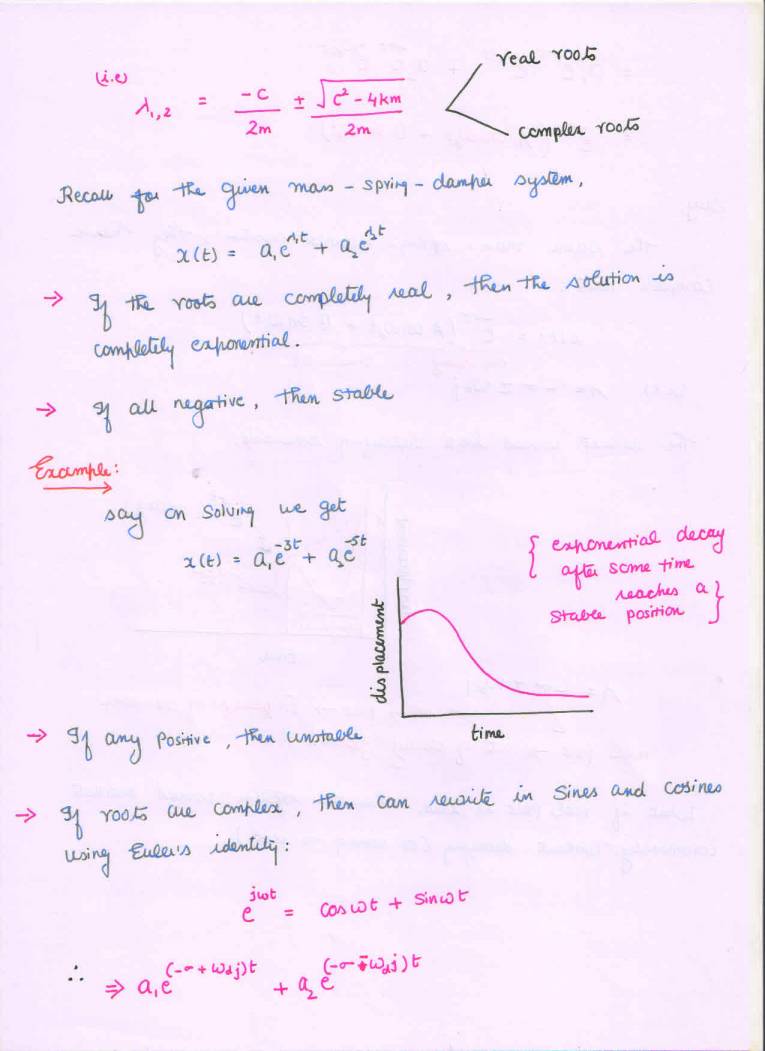 (i.e)
λ₁,₂ = -c/2m ± √(c² - 4km)/2m
real roots
complex roots
Recall for the given mass - spring - damper system,
x(t) = a₁e^λ₁t + a₂e^λ₂t
→ If the roots are completely real, then the solution is
completely exponential.
→ If all negative, then stable
Example:
say on solving we get
x(t) = a₁e^-3t + a₂e^-5t
{ exponential decay
after some time
reaches a
stable position }
displacement
time
→ If any positive, then unstable
→ If roots are complex, then can rewrite in sines and cosines
using Euler's identity:
e^jωt = cosωt + sinωt
∴ ⇒ a₁e^(-σ + ω_d j)t + a₂e^(-σ - ω_d j)t